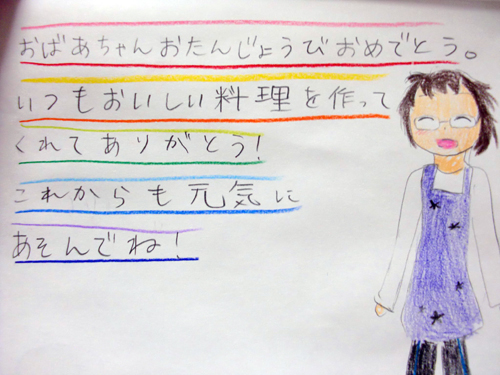 おばあちゃんおたんじょうびおめでとう。
いつもおいしい料理を作って
くれてありがとう!
これからも元気に
あそんでね!